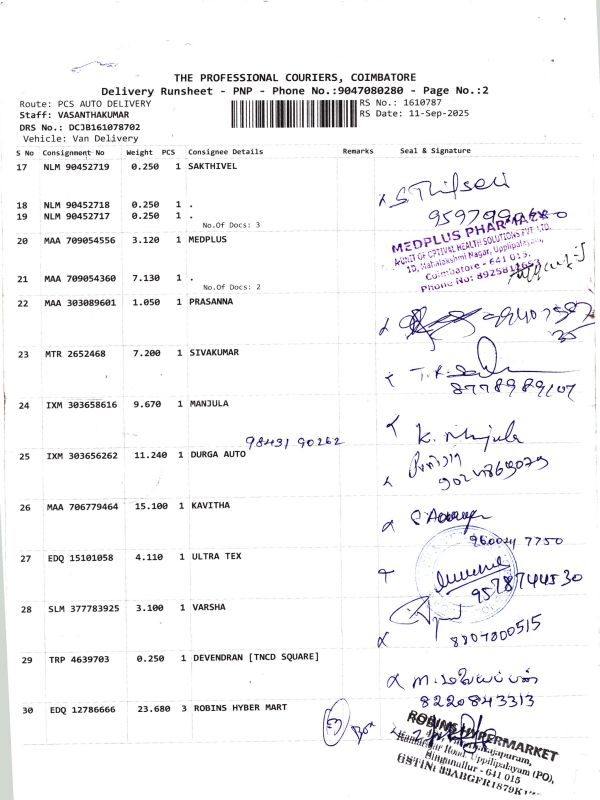 THE PROFESSIONAL COURIERS, COIMBATORE
Delivery Runsheet - PNP - Phone No.:9047080280 - Page No.:2
Route: PCS AUTO DELIVERY RS No.: 1610787
Staff: VASANTHAKUMAR RS Date: 11-Sep-2025
DRS No.: DCJB161078702
Vehicle: Van Delivery
S No Consignment No Weight PCS Consignee Details Remarks Seal & Signature
17 NLM 90452719 0.250 1 SAKTHIVEL
18 NLM 90452718 0.250 1 .
19 NLM 90452717 0.250 1 .
No.Of Docs: 3
20 MAA 709054556 3.120 1 MEDPLUS
MEDPLUS PHARMACY
A UNIT OF OPTIVAL HEALTH SOLUTIONS PVT. LTD.
10, Mahalakshmi Nagar, Uppilipalayam,
Coimbatore - 641 015.
Phone No:
21 MAA 709054360 7.130 1 .
No.Of Docs: 2
22 MAA 303089601 1.050 1 PRASANNA
23 MTR 2652468 7.200 1 SIVAKUMAR
8778989107
24 IXM 303658616 9.670 1 MANJULA
K. Manjula
98431 90262
25 IXM 303656262 11.240 1 DURGA AUTO
26 MAA 706779464 15.100 1 KAVITHA
27 EDQ 15101058 4.110 1 ULTRA TEX
9578744530
28 SLM 377783925 3.100 1 VARSHA
8807800515
29 TRP 4639703 0.250 1 DEVENDRAN [TNCD SQUARE]
8220843313
30 EDQ 12786666 23.680 3 ROBINS HYBER MART
3 Box
ROBINS HYPERMARKET
Kamarajar Road, Uppilipalayam (PO),
Singanallur - 641 015